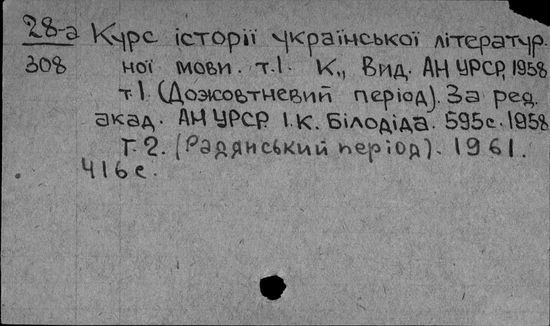 28-а Курс історії української літератур
308 ної мови. т.1. К., Вид. АН УРСР, 1958
т.1. (Дожовтневий період). За ред.
акад. АН УРСР І.К. Білодіда. 595с. 1958
Т.2. (Радянський період). 1961.
416с.